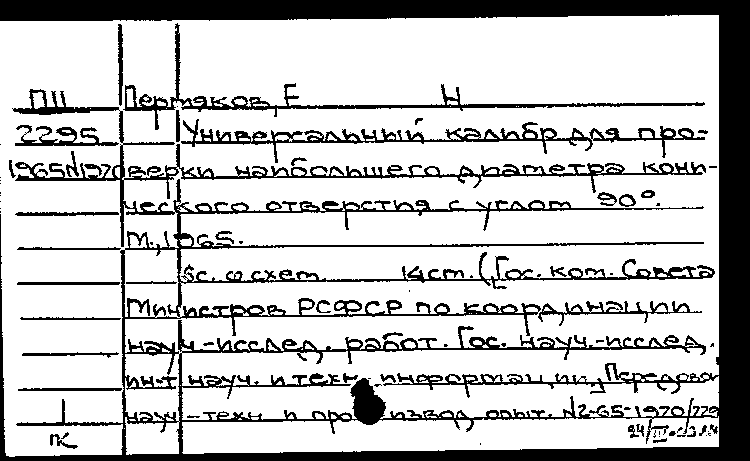 ПШ Пермяков, Е Н
2295 Универсальный калибр для про-
1965№1970 верки наибольшего диаметра кони-
ческого отверстия с углом 90°.
М., 1965.
8с. со схем 14см. (Гос. ком. Совета
Министров РСФСР по координации
науч.-исслед. работ. Гос. науч.-исслед.
ин-т науч. и техн. информации. Передовой
науч-техн и производ. опыт. №2-65-1970/229
ПК